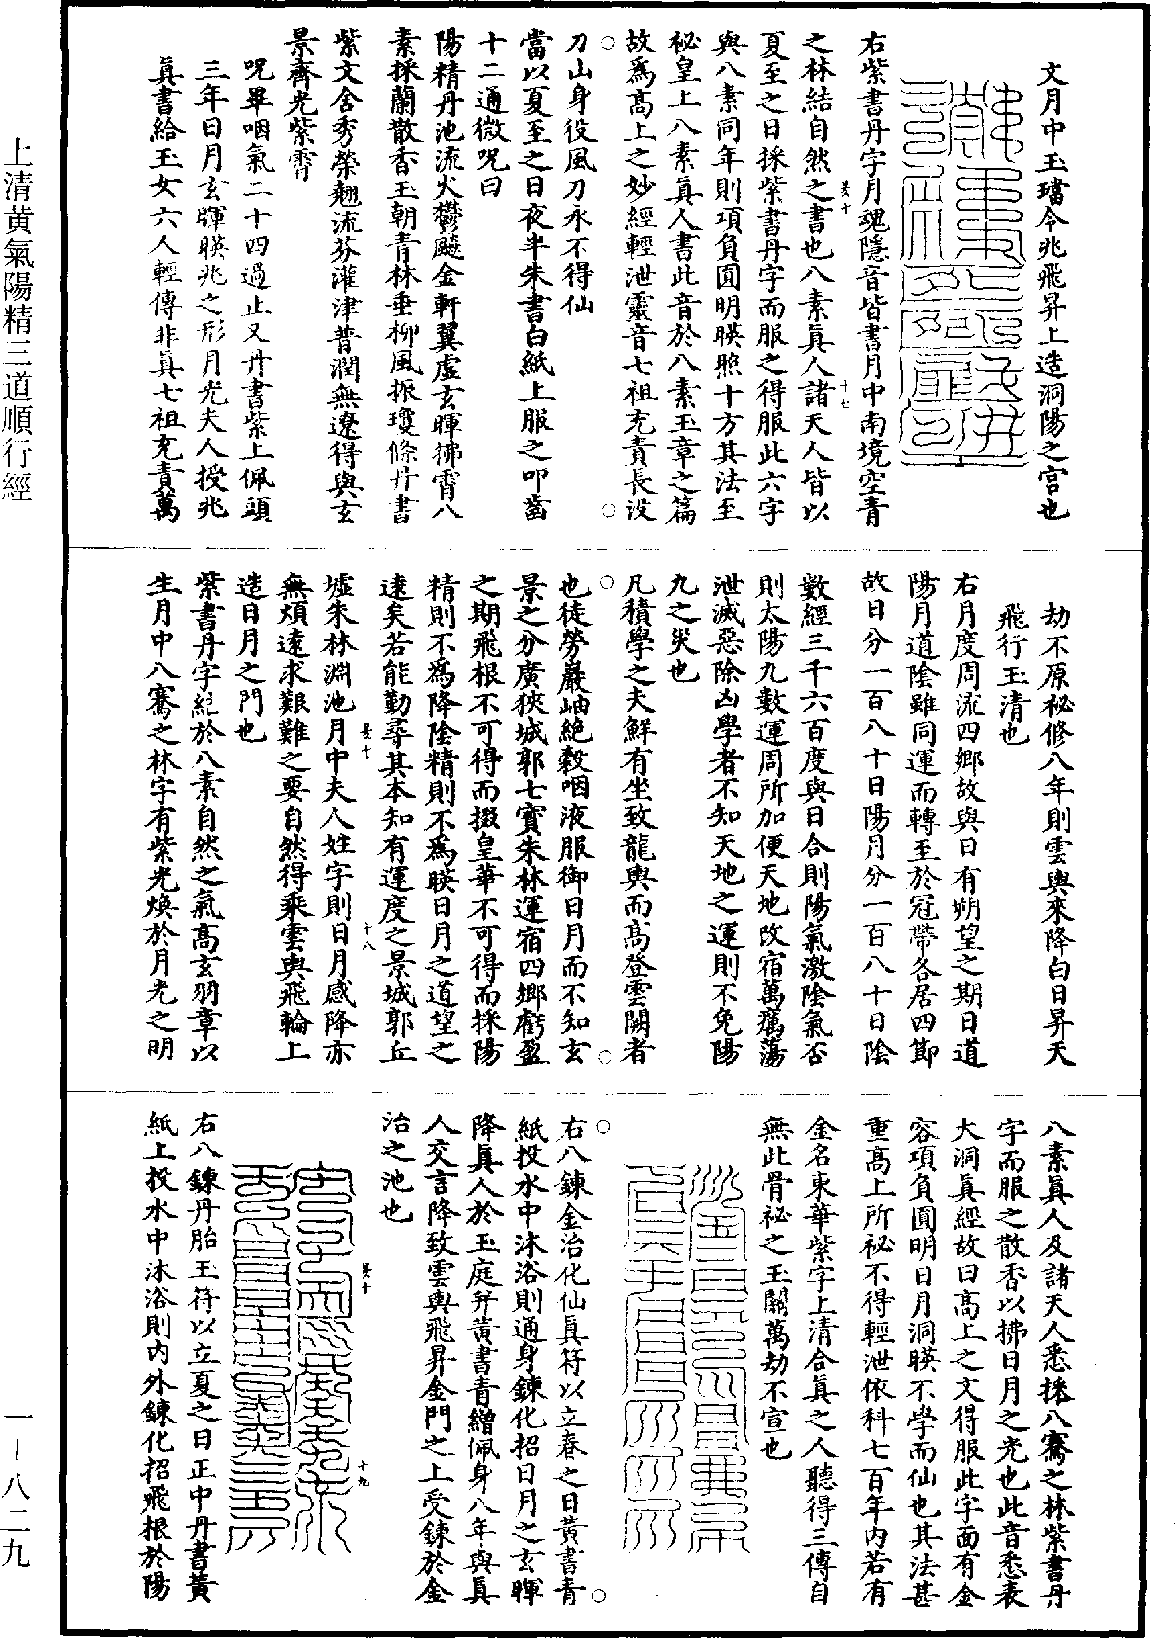 文月中玉璫今兆飛昇上造洞陽之宮也
右紫書丹字月魂隱音皆書月中南境空青
之林結自然之書也八素眞人諸天人皆以
夏至之日採紫書丹字而服之得服此六字
與八素同年則項負圓明暎照十方其法至
祕皇上八素眞人書此音於八素玉章之篇
故爲高上之妙經輕泄靈音七祖充責長没
刀山身役風刀永不得仙
當以夏至之日夜半朱書白紙上服之叩齒
十二通微呪曰
陽精丹池流火鬱飈金軒翼虛玄暉拂霄八
素採蘭散香玉朝青林垂柳風振瓊條丹書
紫文含秀榮翹流芬灌津普潤無遼得與玄
景齊光紫霄
呪畢咽氣二十四過止又丹書紫上佩頭
三年日月玄暉暎兆之形月光夫人授兆
眞書給玉女六人輕傳非眞七祖充責萬
劫不原祕修八年則雲輿來降白日昇天
飛行玉清也
右月度周流四鄉故與日有朔望之期日道
陽月道陰雖同運而轉至於冠帶各居四節
故日分一百八十日陽月分一百八十日陰
數經三千六百度與日合則陽氣激陰氣否
則太陽九數運周所加便天地改宿萬癘蕩
泄滅惡除凶學者不知天地之運則不免陽
九之災也
凡積學之夫鮮有坐致龍輿而高登雲闕者
也徒勞巖岫絶穀咽液服御日月而不知玄
景之分廣狹城郭七寶朱林運宿四鄉虧盈
之期飛根不可得而掇皇華不可得而採陽
精則不爲降陰精則不爲暎日月之道望之
遠矣若能勤尋其本知有運度之景城郭丘
墟朱林淵池月中夫人姓字則日月感降亦
無煩遠求艱難之要自然得乘雲輿飛輪上
造日月之門也
紫書丹字結於八素自然之氣高玄羽章以
生月中八騫之林字有紫光煥於月光之明
八素眞人及諸天人悉採八騫之林紫書丹
字而服之散香以拂日月之光也此音悉表
大洞眞經故曰高上之文得服此字面有金
容項負圓明日月洞暎不學而仙也其法甚
重高上所祕不得輕泄依科七百年内若有
金名東華紫字上清合眞之人聽得三傳自
無此骨祕之玉關萬劫不宣也
右八鍊金治化仙眞符以立春之日黃書青
紙投水中沐浴則通身鍊化招日月之玄暉
降眞人於玉庭并黃書青繒佩身八年與眞
人交言降致雲輿飛昇金門之上受鍊於金
治之池也
右八鍊丹胎玉符以立夏之日正中丹書黃
紙上投水中沐浴則内外鍊化招飛根於陽
上清黃氣陽精三道順行經
一―八二九